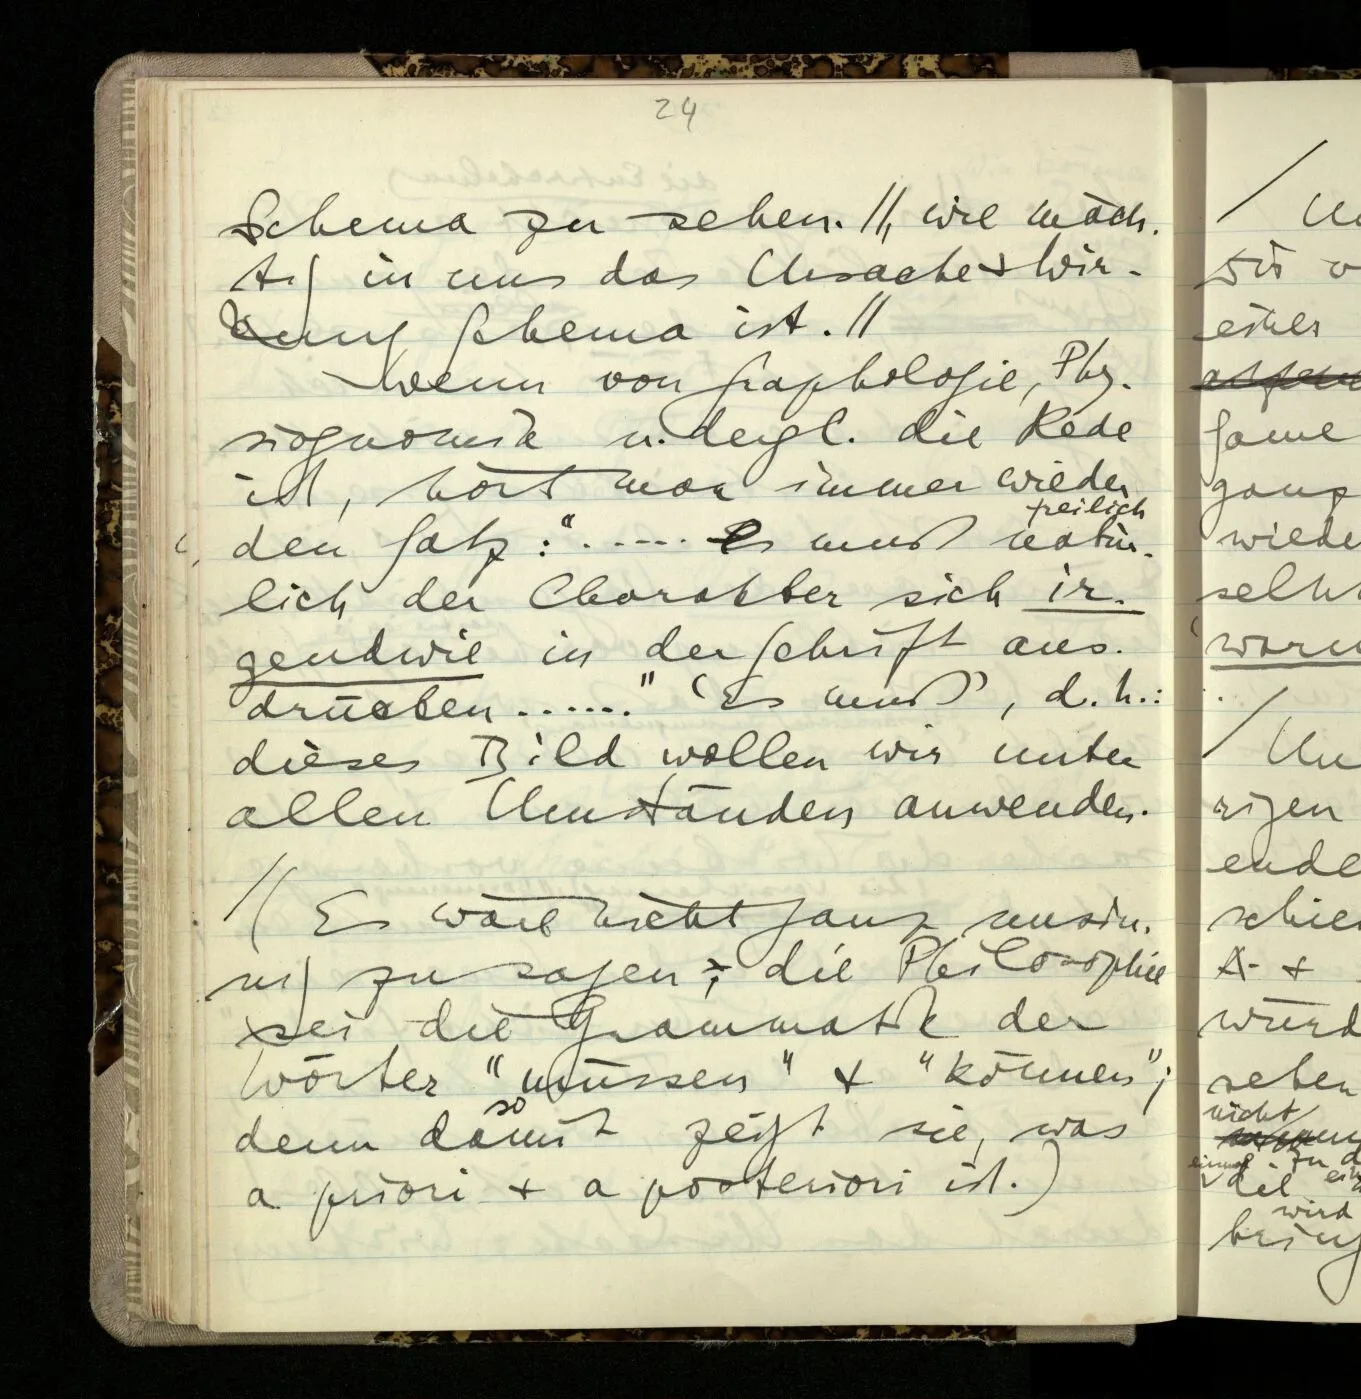 24
Schema zu sehen. //, wie mäch-
tig in uns das Ursache & Wir-
kung Schema ist. //
Wenn von Graphologie, Phy-
siognomik u. dergl. die Rede
ist, hört man immer wieder
freilich
den Satz: "...... Es muß natür-
lich der Charakter sich ir-
gendwie in der Schrift aus-
drücken ......" 'Es muß', d.h.:
dieses Bild wollen wir unter
allen Umständen anwenden.
// ( Es wäre nicht ganz unsin-
nig zu sagen, die Philosophie
sei die Grammatik der
Wörter "müssen" & "können";
so
denn damit zeigt sie, was
a priori & a posteriori ist.)
/ Un
wir v
eines
game
ganz
wiede
selbs
waru
/ Un
rigen
ende
schie
A - &
würd
sehen
nicht
zu d
die
wird
bring